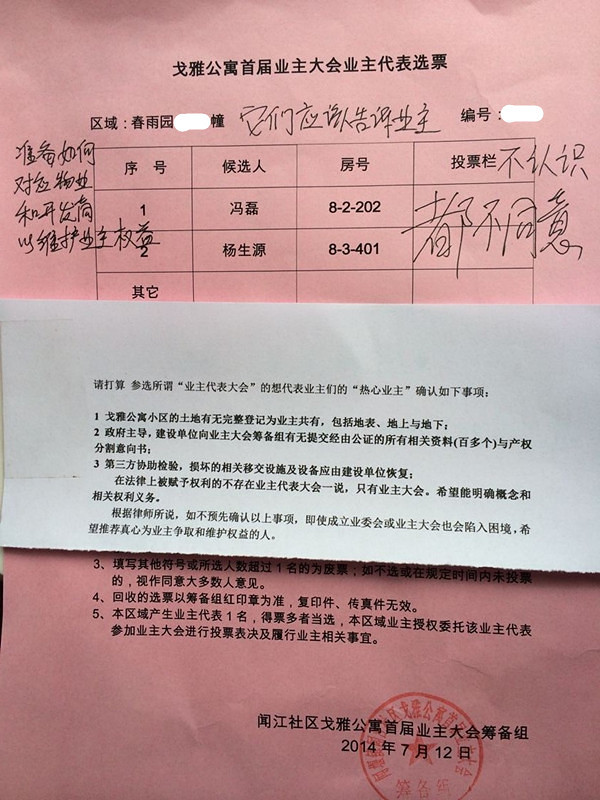 戈雅公寓首届业主大会业主代表选票
区域：春雨园 幢 它们应该告诉业主 编号：
准备如何
对应物业
和开发商
以维护业主权益
序 号 候选人 房号 投票栏 不认识
1 冯磊 8-2-202
2 杨生源 8-3-401
都不同意
其它
请打算 参选所谓“业主代表大会”的想代表业主们的“热心业主”确认如下事项：
1 戈雅公寓小区的土地有无完整登记为业主共有，包括地表、地上与地下；
2 政府主导，建设单位向业主大会筹备组有无提交经由公证的所有相关资料(百多个)与产权
分割意向书；
3 第三方协助检验，损坏的相关移交设施及设备应由建设单位恢复；
在法律上被赋予权利的不存在业主代表大会一说，只有业主大会。希望能明确概念和
相关权利义务。
根据律师所说，如不预先确认以上事项，即使成立业委会或业主大会也会陷入困境，希
望推荐真心为业主争取和维护权益的人。
3、填写其他符号或所选人数超过 1 名的为废票；如不选或在规定时间内未投票
的，视作同意大多数人意见。
4、回收的选票以筹备组红印章为准，复印件、传真件无效。
5、本区域产生业主代表 1 名，得票多者当选，本区域业主授权委托该业主代表
参加业主大会进行投票表决及履行业主相关事宜。
闻江社区戈雅公寓首届业主大会筹备组
2014 年 7 月 12 日
筹备组